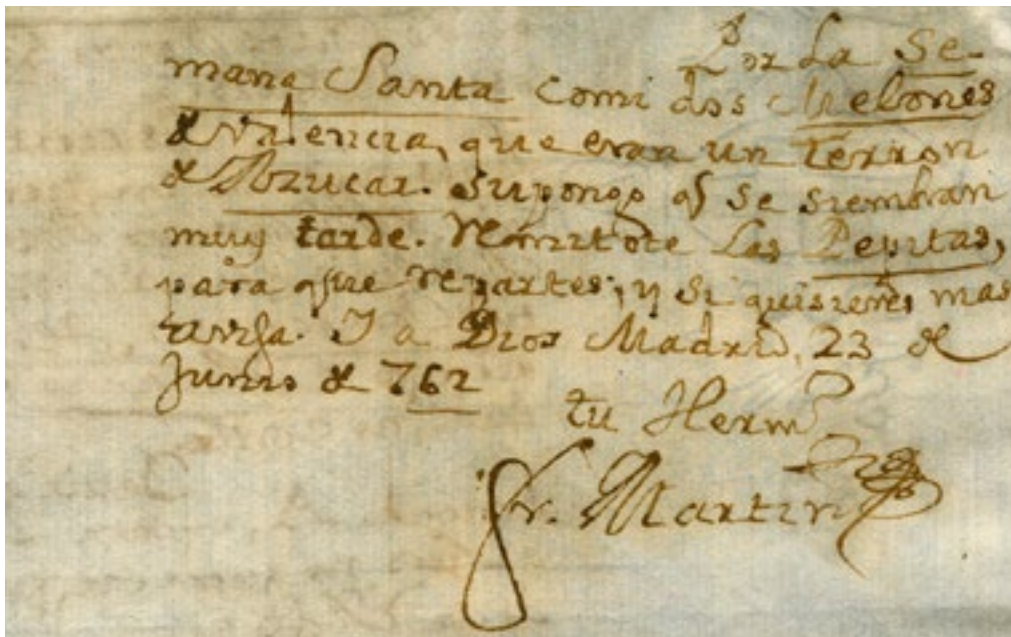 Por La Se-
mana Santa comi dos Melones
de Valencia, que eran un Terron
de Azucar. Supongo q se siembran
muy tarde. Remitote Las Pepitas,
para que repartes, y si quisieres mas
avisa. Y a Dios Madrid, 23 de
Junio de 762
tu Herm.o
Fr. Martin